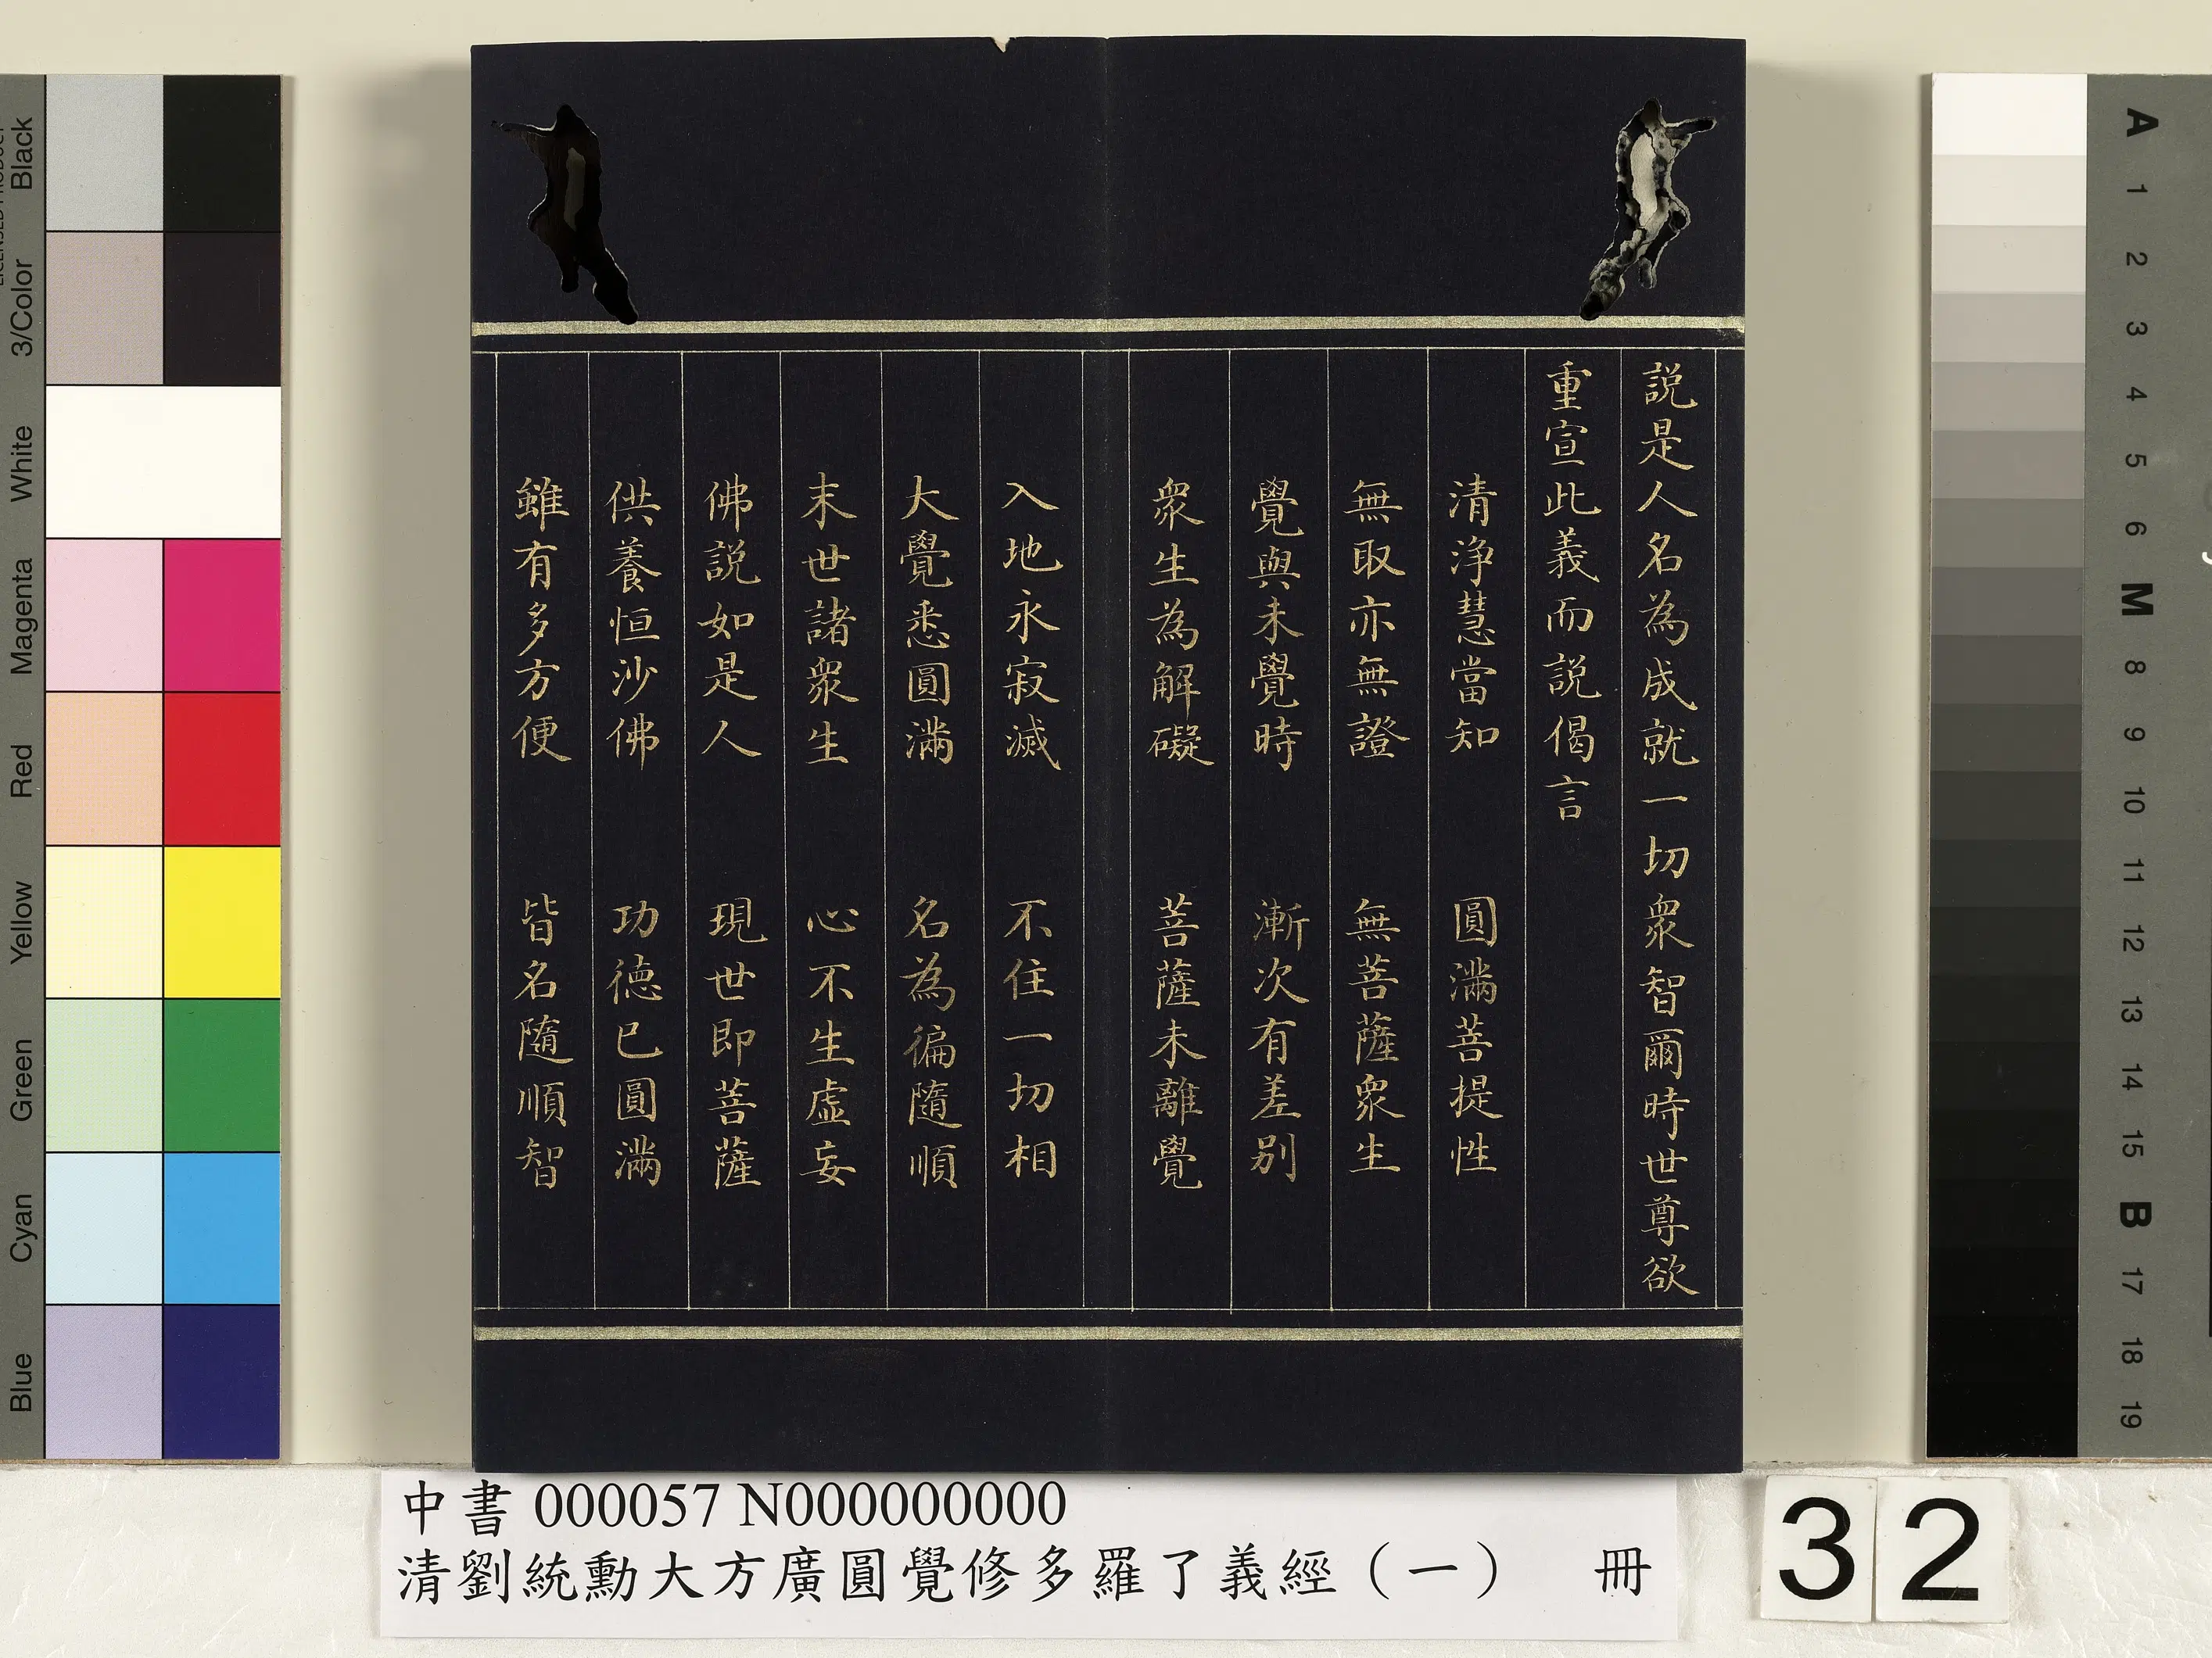 說是人名為成就一切衆智爾時世尊欲
重宣此義而說偈言
清淨慧當知　圓滿菩提性
無取亦無證　無菩薩衆生
覺與未覺時　漸次有差别
衆生為解礙　菩薩未離覺
入地永寂滅　不住一切相
大覺悉圓滿　名為徧隨順
末世諸衆生　心不生虛妄
佛說如是人　現世即菩薩
供養恒沙佛　功德已圓滿
雖有多方便　皆名隨順智
中書 000057 N000000000
清劉統勳大方廣圓覺修多羅了義經（一）　冊
32
Black
3/Color
White
Magenta
Red
Yellow
Green
Cyan
Blue
A
1
2
3
4
5
6
M
8
9
10
11
12
13
14
15
B
17
18
19